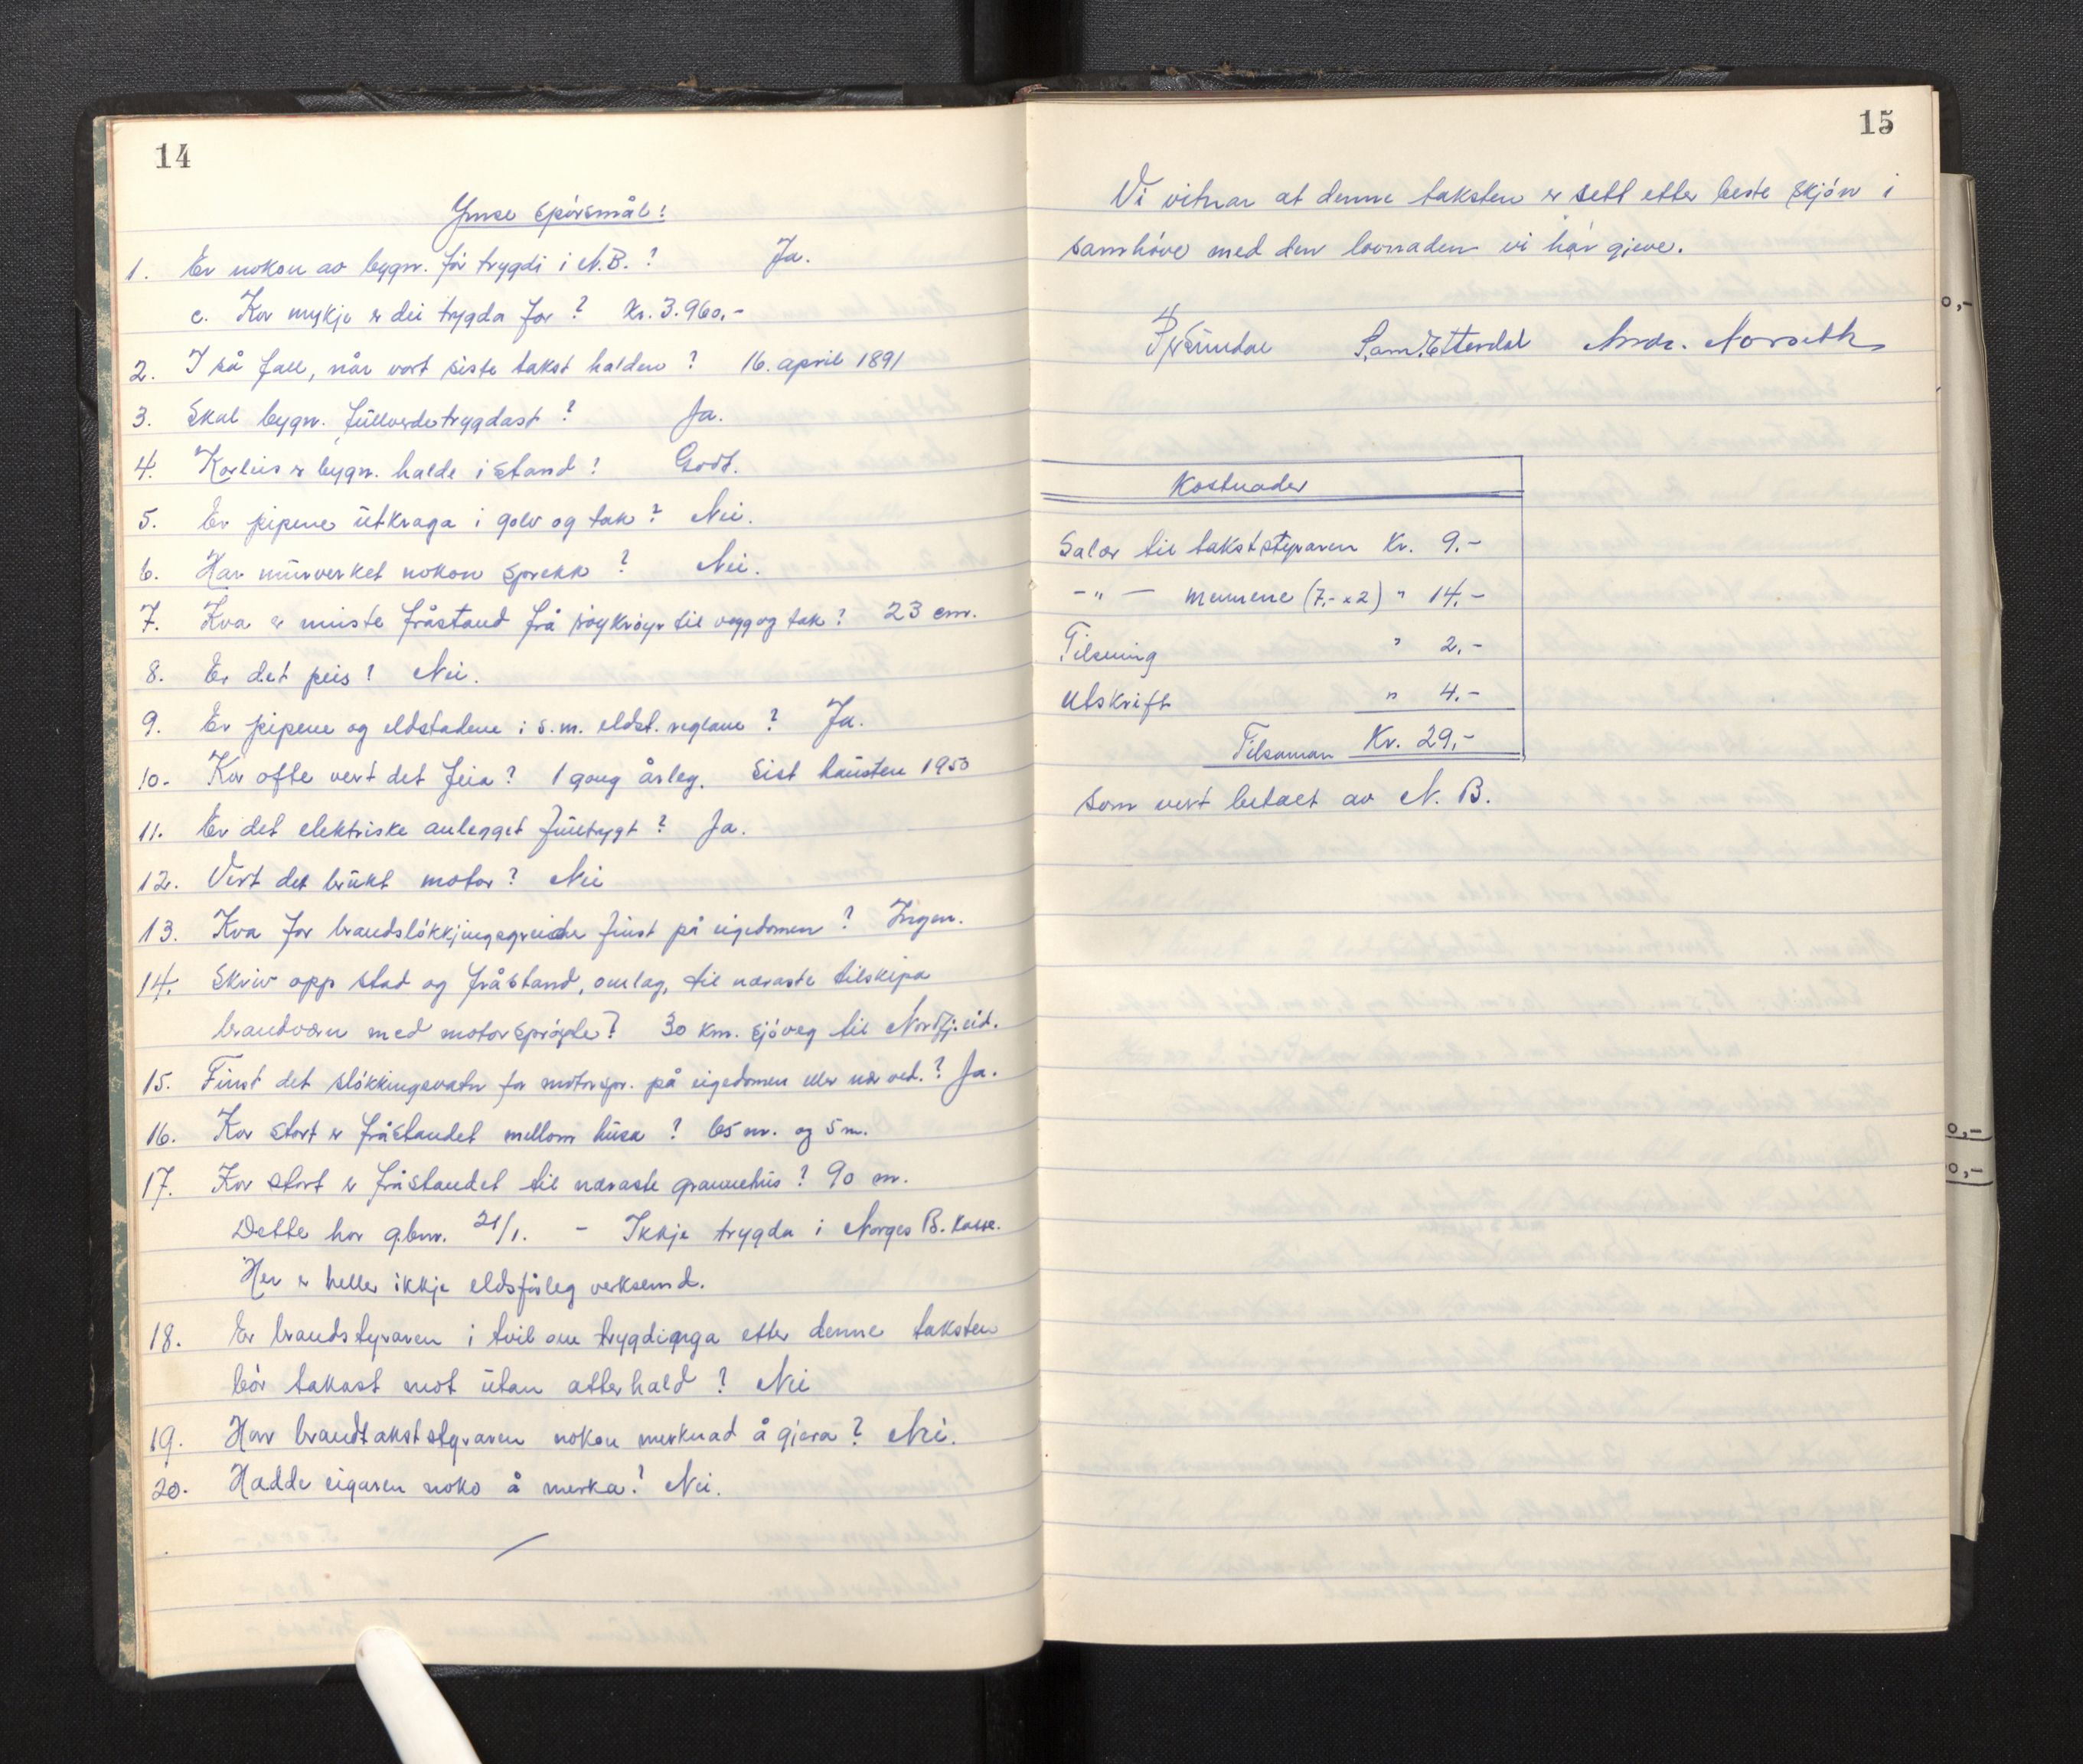 14
Ymse spørsmål:
1. Er nokon av bygn. før trygdi i N.B.? Ja.
c. Kor mykje er dei trygda for? Kr. 3.960,-
2. I så fall, når vart siste takst halden? 16. april 1891
3. Skal bygn. fullverdetrygdast? Ja.
4. Korleis er bygn. halde i stand? Godt.
5. Er pipene utkraga i golv og tak? Nei.
6. Har murverket nokon sprekk? Nei.
7. Kva er minste fråstand frå røykrøyr til vegg og tak? 23 cm.
8. Er det peis? Nei.
9. Er pipene og eldstadene i s.m. eldst. reglane? Ja.
10. Kor ofte vert det feia? 1 gong årleg. Sist hausten 1953
11. Er det elektriske anlegget fulltrygt? Ja.
12. Vert det brukt motor? Nei
13. Kva for brandsløkkjingsgreide finst på eigedomen? Ingen.
14. Skriv opp stad og fråstand, omlag, til næraste tilskipa
brandvern med motorsprøyte? 30 km. sjøveg til Nordfj.eid.
15. Finst det sløkkingsvatn for motorspr. på eigedomen eller nær ved.? Ja.
16. Kor stort er fråstandet mellom husa? 65 m. og 5 m.
17. Kor stort er fråstandet til næraste grannehus? 90 m.
Dette har gbnr. 21/1. - Ikkje trygda i Norges B. kasse.
Her er heller ikkje eldsfårleg verksemd.
18. Er brandstyraren i tvil om trygdinga etter denne taksten
bør takast mot utan atterhald? Nei
19. Har brandtakststyraren nokon merknad å gjera? Nei.
20. Hadde eigaren noko å merka? Nei.
15
Vi vitnar at denne taksten er sett etter beste skjøn i
samhøve med den lovnaden vi har gjeve.
Sam. Etterdal Andr. Norseth
Kostnader
Salær til takststyraren Kr. 9.-
-"- mennene (7,- x 2) " 14.-
Tilsening " 2.-
Utskrift " 4.-
Tilsaman Kr. 29,-
som vert betalt av N. B.
0,-
0,-
0,-